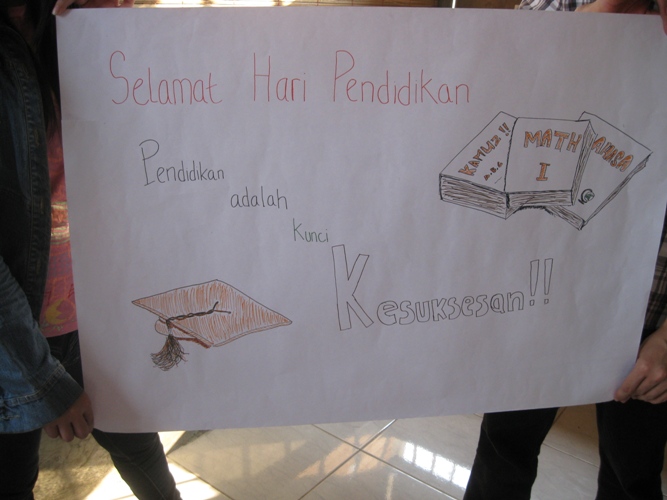 Selamat Hari Pendidikan
Pendidikan
adalah
Kunci
Kesuksesan!!
KAMUS !!
A.B.C
MATH
I